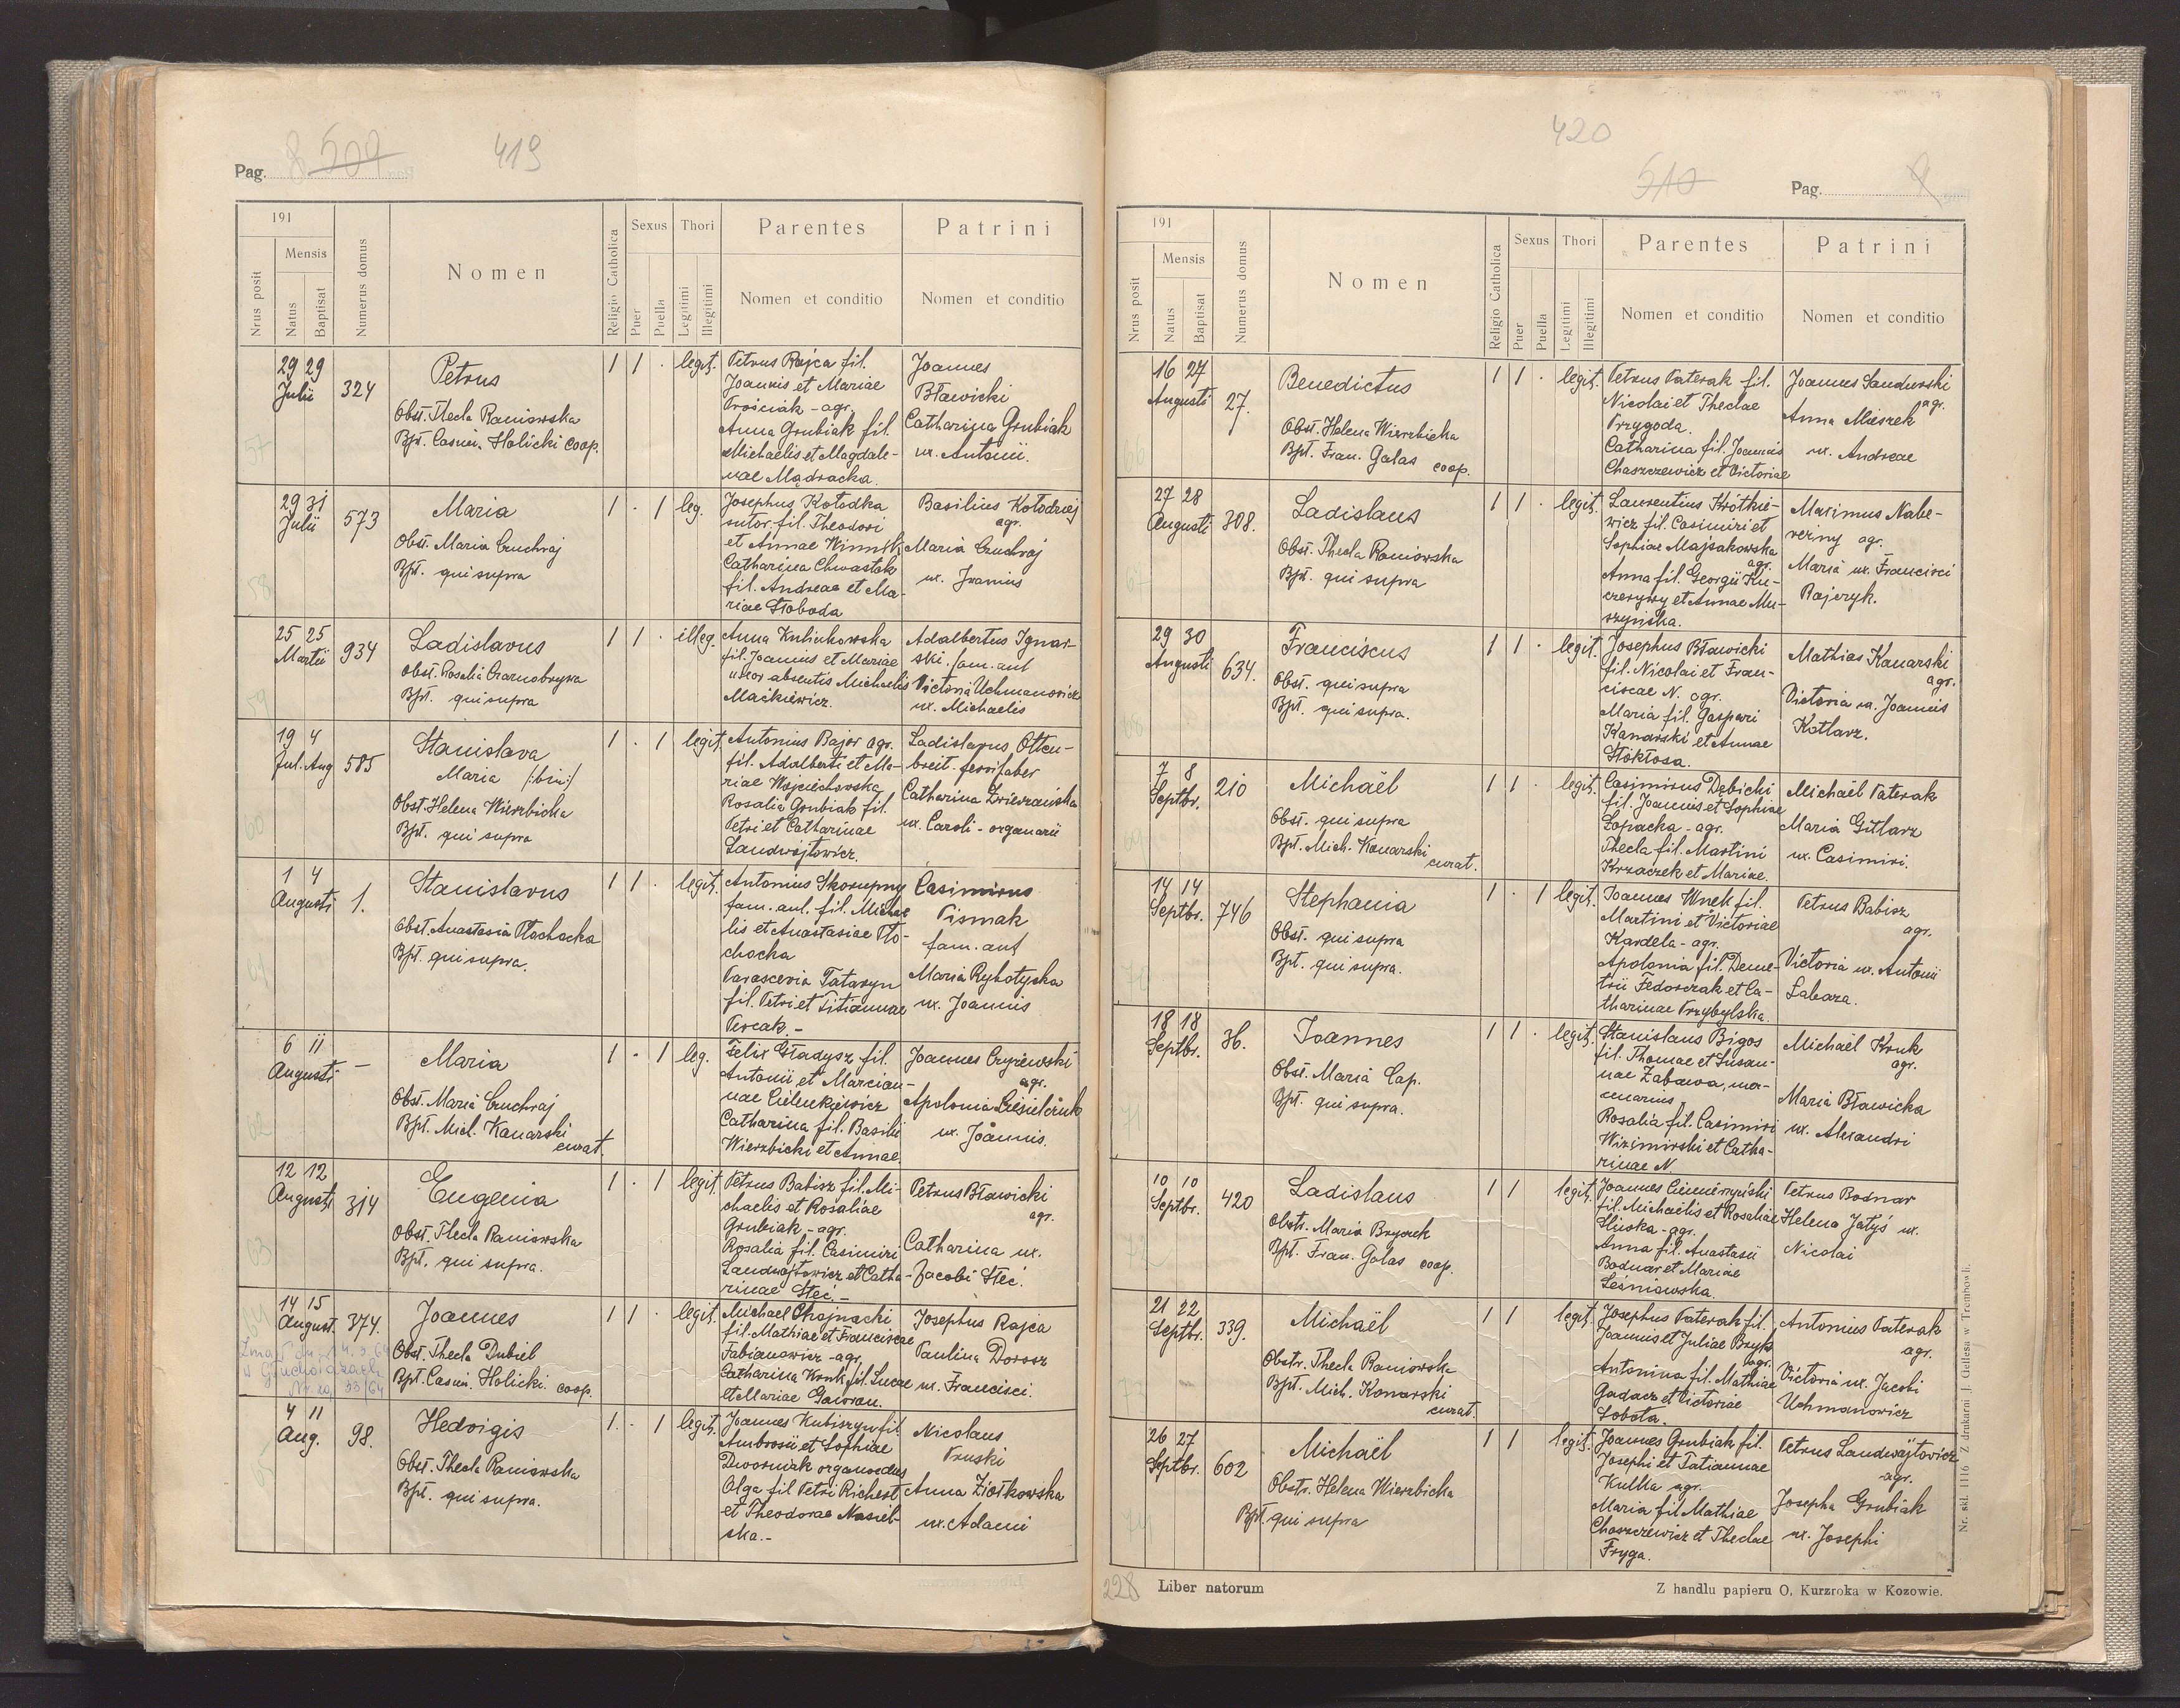 Pag. 8 509 419
191
Mensis
Nrus posit
Natus
Baptisat
Numerus domus
Nomen
Religio Catholica
Sexus
Puer
Puella
Thori
Legitimi
Illegitimi
Parentes
Nomen et conditio
Patrini
Nomen et conditio
57
29 29
Julii
324
Petrus
Obst. Thecla Raniowska
Bpt. Casim. Holicki coop.
1 1 . legit.
Petrus Rajca fil.
Joannis et Mariae
Prośniak - agr.
Anna Grubiak fil.
Michaelis et Magdale-
nae Mądracka.
Joannes
Bławicki
Catharina Grubiak
ux. Antonii.
58
29 31
Julii
573
Maria
Obst. Maria Cruchraj
Bpt. qui supra
1 . 1 leg.
Josephus Kołodka
sutor. fil. Theodori
et Annae
Catharina Chwastek
fil. Andreae et Ma-
riae Słoboda
Basilius Kołodziej
agr.
Maria Cruchraj
ux. Joannis
59
25 25
Martii
934
Ladislavus
Obst. Rosalia Czarnobrywa
Bpt. qui supra
1 1 . illeg.
Anna Kulikowska
fil. Joannis et Mariae
uxor absentis Michaelis
Maćkiewicz.
Adalbertus Ignar-
ski. fam. aul
Victoria Uchmanowicz
ux. Michaelis
60
19 4
Jul. Aug
585
Stanislava
Maria /:bin:/
Obst. Helena Wierzbicka
Bpt. qui supra
1 . 1 legit.
Antonius Bajor agr.
fil. Adalberti et Ma-
riae Wojciechowska
Rosalia Grubiak fil.
Petri et Catharinae
Landwójtowicz.
Ladislavus Otten-
breit. ferrifaber
Catharina
ux. Caroli - organarii
61
1 4
Augusti
1.
Stanislavus
Obst. Anastasia Płachocka
Bpt. qui supra.
1 1 . legit.
Antonius Skorupny
fam. aul. fil. Michae
lis et Anastasiae Pło-
chocka
Parascevia Tataryn
fil. Petri et Titiannae
Percak. -
Casimirus
Pismak
fam. aul
Maria Rybotycka
ux. Joannis
62
6 11
Augusti
—
Maria
Obst. Maria Cruchraj
Bpt. Mich. Kanarski
curat.
1 - 1 leg.
Felix Gładysz fil.
Antonii et Marcian-
nae Cielenkiewicz
Catharina fil. Basilii
Wierzbicki et Annae.
Joannes Czyżewski
agr.
Apolonia Cieśielczuk
ux. Joannis.
63
12 12
Augusti
314
Eugenia
Obst. Thecla Raniowska
Bpt. qui supra.
1 . 1 legit.
Petrus Babisz fil. Mi-
chaelis et Rosaliae
Grubiak - agr.
Rosalia fil. Casimiri
Landwójtowicz et Catha-
rinae Steć. -
Petrus Bławicki
agr.
Catharina ux.
Jacobi Steć.
64
14 15
August.
374.
Joannes
Obst. Thecla Dubiel
Bpt. Casim. Holicki. coop.
w Głuchołazach
1 1 . legit.
Michael Chajnacki
fil. Mathiae et Franciscae
Fabianowicz - agr.
Catharina Kruk fil. Lucae
et Mariae Gawron.
Josephus Rajca
Paulina Dorosz
ux. Francisci.
65
4 11
Aug.
98.
Hedvigis
Obst. Thecla Raniowska
Bpt. qui supra.
1. . 1 legit.
Joannes Kubiszyn fil.
Ambrosii et Sophiae
Dwornik organoedus
Olga fil Petri Richert
et Theodorae Nasieb-
ska. -
Nicolaus
Pruski
Anna Ziółkowska
ux. Adami
420
510 Pag. 9
191
Mensis
Nrus posit
Natus
Baptisat
Numerus domus
Nomen
Religio Catholica
Sexus
Puer
Puella
Thori
Legitimi
Illegitimi
Parentes
Nomen et conditio
Patrini
Nomen et conditio
66
16 27
Augusti
27.
Benedictus
Obst. Helena Wierzbicka
Bpt. Fran. Galas coop.
1 1 . legit.
Petrus Paterak fil.
Nicolai et Theclae
Przygoda.
Catharina fil. Joannis
Chaszczewicz et Victoriae
Joannes Sandurski
agr.
Anna Mieszek
ux. Andreae
67
27 28
Augusti
308.
Ladislaus
Obst. Thecla Raniowska
Bpt. qui supra
1 1 . legit.
Laurentius Krótkie-
wicz fil. Casimiri et
Sophiae Majsakowska
agr.
Anna fil. Georgii Ku-
czerywy et Annae Mu-
szyńska.
Maximus Nabe-
reżny agr.
Maria ux. Francisci
Rajczyk.
68
29 30
Augusti
634.
Franciscus
Obst. qui supra
Bpt. qui supra.
1 1 . legit.
Josephus Bławicki
fil. Nicolai et Fran-
ciscae N. agr.
Maria fil. Gaspari
Kanarski et Annae
Stokłosa.
Mathias Kanarski
agr.
Victoria ux. Joannis
Kotlarz.
69
7 8
Septbr.
210
Michaël
Obst. qui supra
Bpt. Mich. Kanarski
curat.
1 1 . legit.
Casimirus Dębicki
fil. Joannis et Sophiae
Łopacka - agr.
Thecla fil. Martini
Krzaczek et Mariae.
Michaël Paterak
Maria Gitlarz
ux. Casimiri.
70
14 14
Septbr.
746
Stephania
Obst. qui supra
Bpt. qui supra.
1 . 1 legit.
Joannes Wnek fil.
Martini et Victoriae
Kardela - agr.
Apolonia fil. Deme-
trii Fedorczak et Ca-
tharinae Przybylska.
Petrus Babisz
agr.
Victoria ux. Antonii
Labaza.
71
18 18
Septbr.
36.
Joannes
Obst. Maria Cap.
Bpt. qui supra.
1 1 . legit.
Stanislaus Bigos
fil. Thomae et Susan-
nae Zabawa, mer-
cenarius
Rosalia fil. Casimiri
Wizimirski et Catha-
rinae N.
Michaël Kruk
agr.
Maria Bławicka
ux. Alexandri
72
10 10
Septbr.
420
Ladislaus
Obstr. Maria Bryczek
Bpt. Fran. Galas coop.
1 1 legit.
Joannes
fil. Michaelis et Rosaliae
Śliwka - agr.
Anna fil. Anastasii
Bodnar et Mariae
Leśniowska.
Petrus Bodnar
Helena Jatyś ux.
Nicolai
73
21 22
Septbr.
339.
Michaël
Obstr. Thecla Raniowska
Bpt. Mich. Konarski
curat.
1 1 legit.
Josephus Paterak fil.
Joannis et Juliae Bryk
agr.
Antonina fil. Mathiae
Gadacz et Victoriae
Sobota.
Antonius Paterak
agr.
Victoria ux. Jacobi
Uchmanowicz
74
26 27
Septbr.
602
Michaël
Obstr. Helena Wierzbicka
Bpt. qui supra
1 1 legit.
Joannes Grubiak fil.
Josephi et Tatiannae
Kulka agr.
Maria fil Mathiae
Chaszczewicz et Theclae
Fryga.
Petrus Landwójtowicz
agr.
Josepha Grubiak
ux. Josephi
228 Liber natorum
Z handlu papieru O. Kurzroka w Kozowie.
Nr. skl. 1116 Z drukarni J. Gellesa w Trembowli.